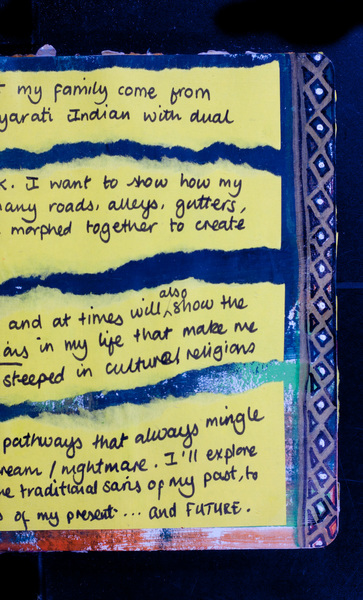 my family come from
yarati Indian with dual
. I want to show how my
any roads, alleys, gutters,
morphed together to create
and at times will also show the
ans in my life that make me
steeped in cultural religions
pathways that always mingle
ream / nightmare. I'll explore
e traditional saris of my past, to
s of my present... and FUTURE.